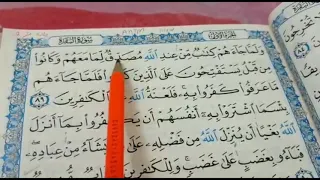 سورة البقرة
الجزء الأول
ولما جاءهم كتب من عند الله مصدق لما معهم وكانوا
من قبل يستفتحون على الذين كفروا فلما جاءهم
ما عرفوا كفروا به فلعنة الله على الكفرين ٨٩
بئسما اشتروا به أنفسهم أن يكفروا بما أنزل
الله بغيا أن ينزل الله من فضله على من يشاء من عباده
فباءو بغضب على غضب وللكفرين